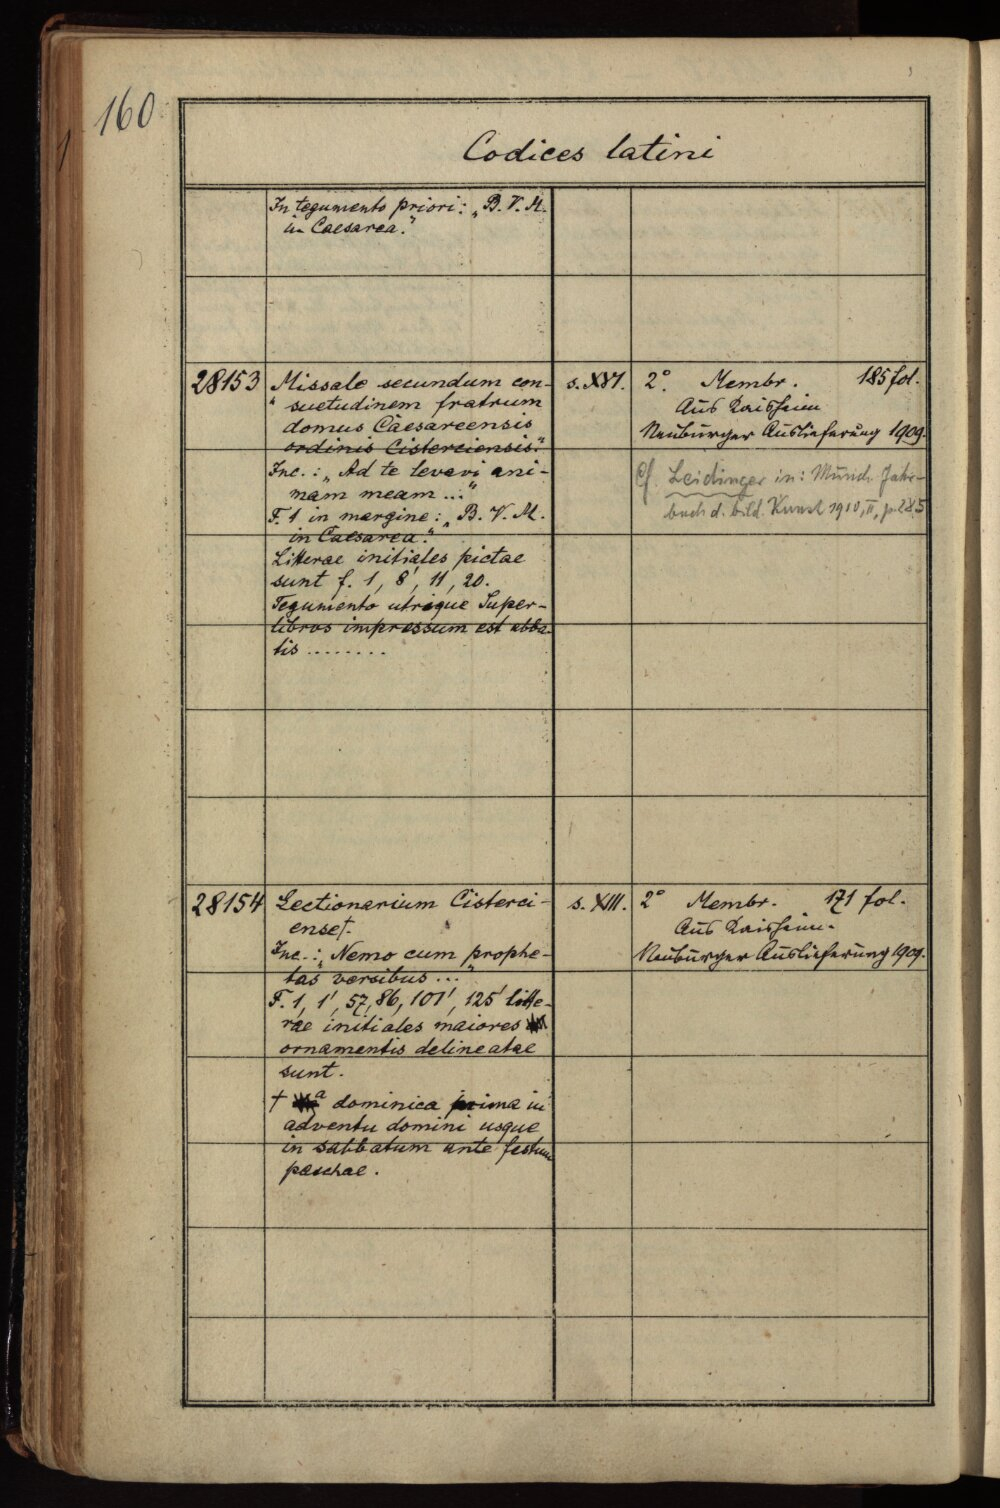 160
Codices latini
In tegumento priori: „B. V. M.
in Caesarea."
28153
Missale secundum con-
„suetudinem fratrum
domus Caesareensis
ordinis Cisterciensis."
Inc.: „Ad te levavi ani-
mam meam ..."
F. 1 in margine: „B. V. M.
in Caesarea."
Litterae initiales pictae
sunt f. 1, 8', 11, 20.
Tegumento utrique Super-
libros impressum est abba-
tis ........
s. XVI.
2° Membr. 185 fol.
Aus Kaisheim
Neuburger Auslieferung 1909.
Cf. Leidinger in: Münch. Jahr-
buch d. bild. Kunst 1910, II, p. 285
28154
Lectionarium Cisterci-
ense†.
Inc.: „Nemo cum prophe-
tas versibus ..."
F. 1, 1', 57, 86, 101', 125' litte-
rae initiales maiores
ornamentis delineatae
sunt.
† a dominica prima in
adventu domini usque
in sabbatum ante festum
paschae.
s. XIII.
2° Membr. 171 fol.
Aus Kaisheim.
Neuburger Auslieferung 1909.